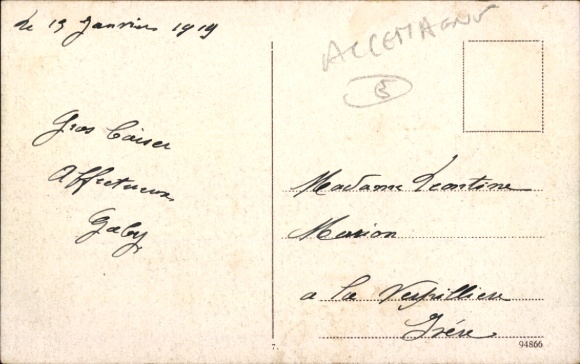 Le 13 Janvier 1919
Gros baiser
Affectueux
Gaby
ALLEMAGNE
5
Madame Leontine
Marion
a la Verpilliere
Isère
7.
94866